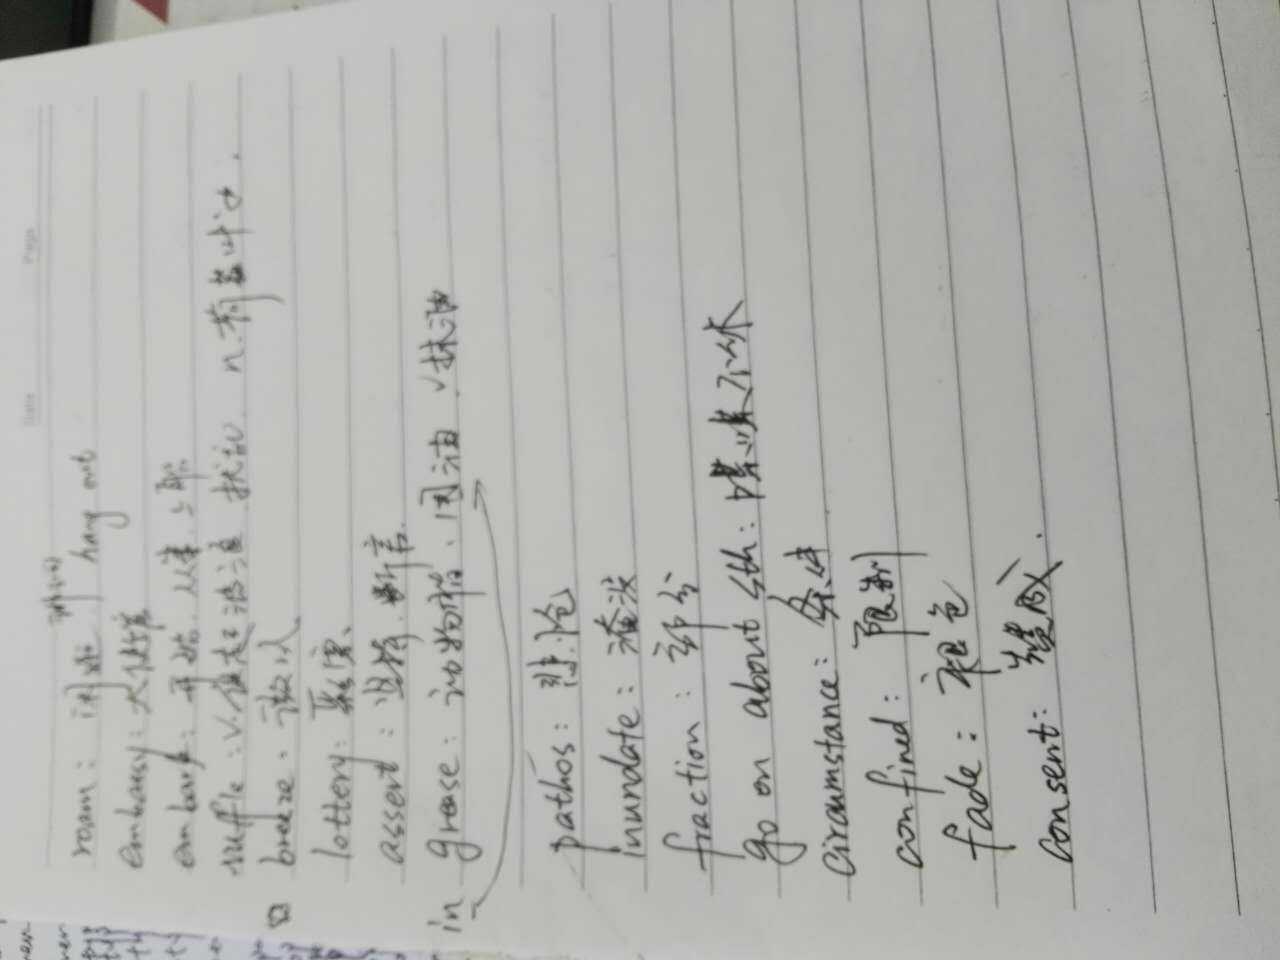 Date Page
roam: 闲逛 hang out
embassy: 大使馆
embark: 开始. 从事. 上船
ruffle: v. 使起波澜. 扰乱. n.
breeze: 微风
lottery: 彩票.
assert: 坚持. 断言.
in grease: 动物脂. 润油 v 抹油
pathos: 悲怆
inundate: 淹没
fraction: 部分
go on about sth: 喋喋不休
circumstance: 条件
confined: 限制
fade: 褪色
consent: 赞成.